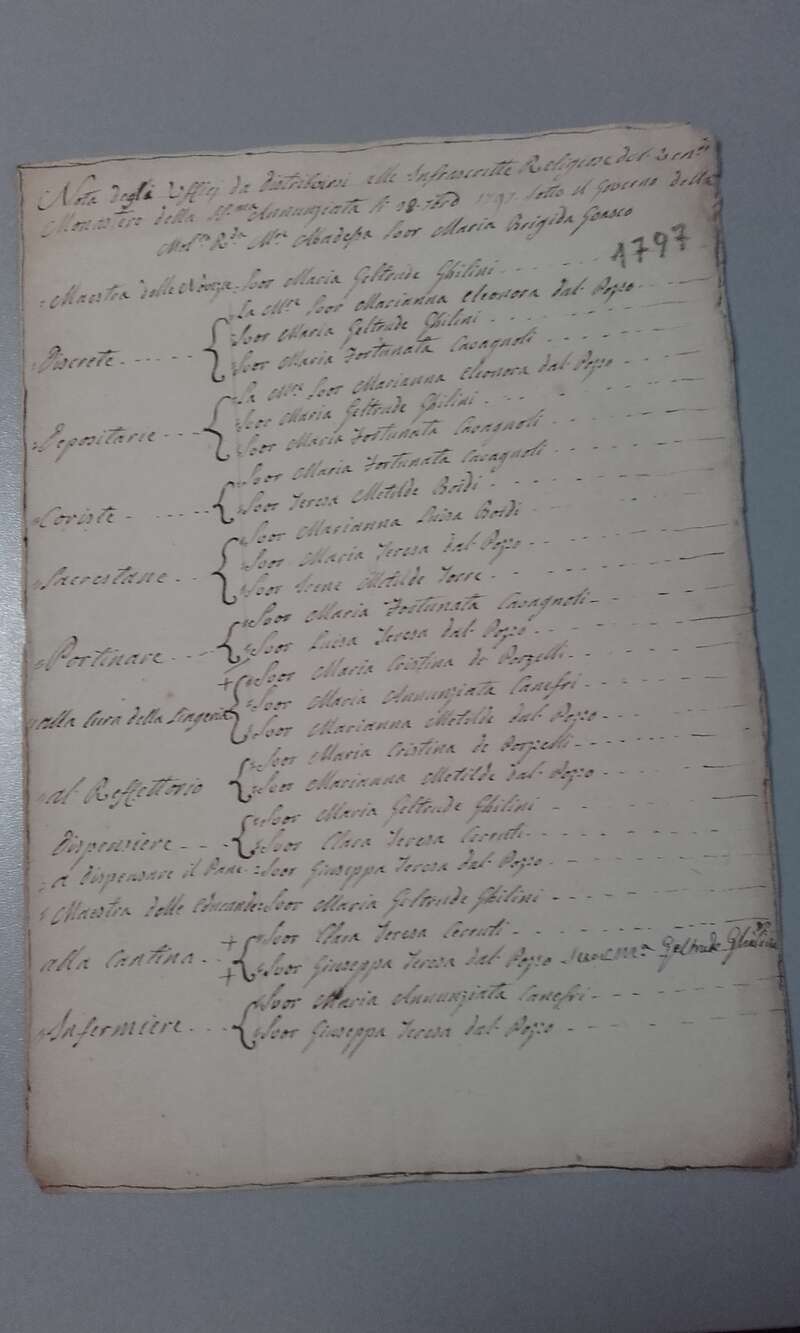 Nota degli Ufficj da distribuirsi alle Infrascritte Religiose del Ven:
Monastero della SS.ma Annunziata li 18 1797 Sotto il Governo della
Mol:to R:da M:re Abadessa Suor Maria Brigida Guasco
1797
Maestra delle Novizze Suor Maria Geltrude Ghilini
La M:re Suor Marianna Eleonora dal Pozzo
Discrete Suor Maria Geltrude Ghilini
Suor Maria Fortunata Casagnoli
La M:re Suor Marianna Eleonora dal Pozzo
Depositarie Suor Maria Geltrude Ghilini
Suor Maria Fortunata Casagnoli
Suor Maria Fortunata Casagnoli
Coriste Suor Teresa Metilde Boidi
Suor Marianna Luisa Boidi
Sacrestane Suor Maria Teresa dal Pozzo
Suor Irene Metilde Torre
Suor Maria Fortunata Casagnoli
Portinare Suor Luisa Teresa dal Pozzo
+ Suor Maria Cristina de Porzelli
alla Cura della Lingeria Suor Maria Annunziata Canefri
Suor Marianna Metilde dal Pozzo
Suor Maria Cristina de Porzelli
al Reffettorio Suor Marianna Metilde dal Pozzo
Suor Maria Geltrude Ghilini
Dispensiere Suor Clara Teresa Cerruti
a dispensare il Pane Suor Giuseppa Teresa dal Pozzo
Maestra delle Educande Suor Maria Geltrude Ghilini
+ Suor Clara Teresa Cerruti
alla Cantina + Suor Giuseppa Teresa dal Pozzo Suor M:a Geltrude Ghilini
Suor Maria Annunziata Canefri
Infermiere Suor Giuseppa Teresa dal Pozzo